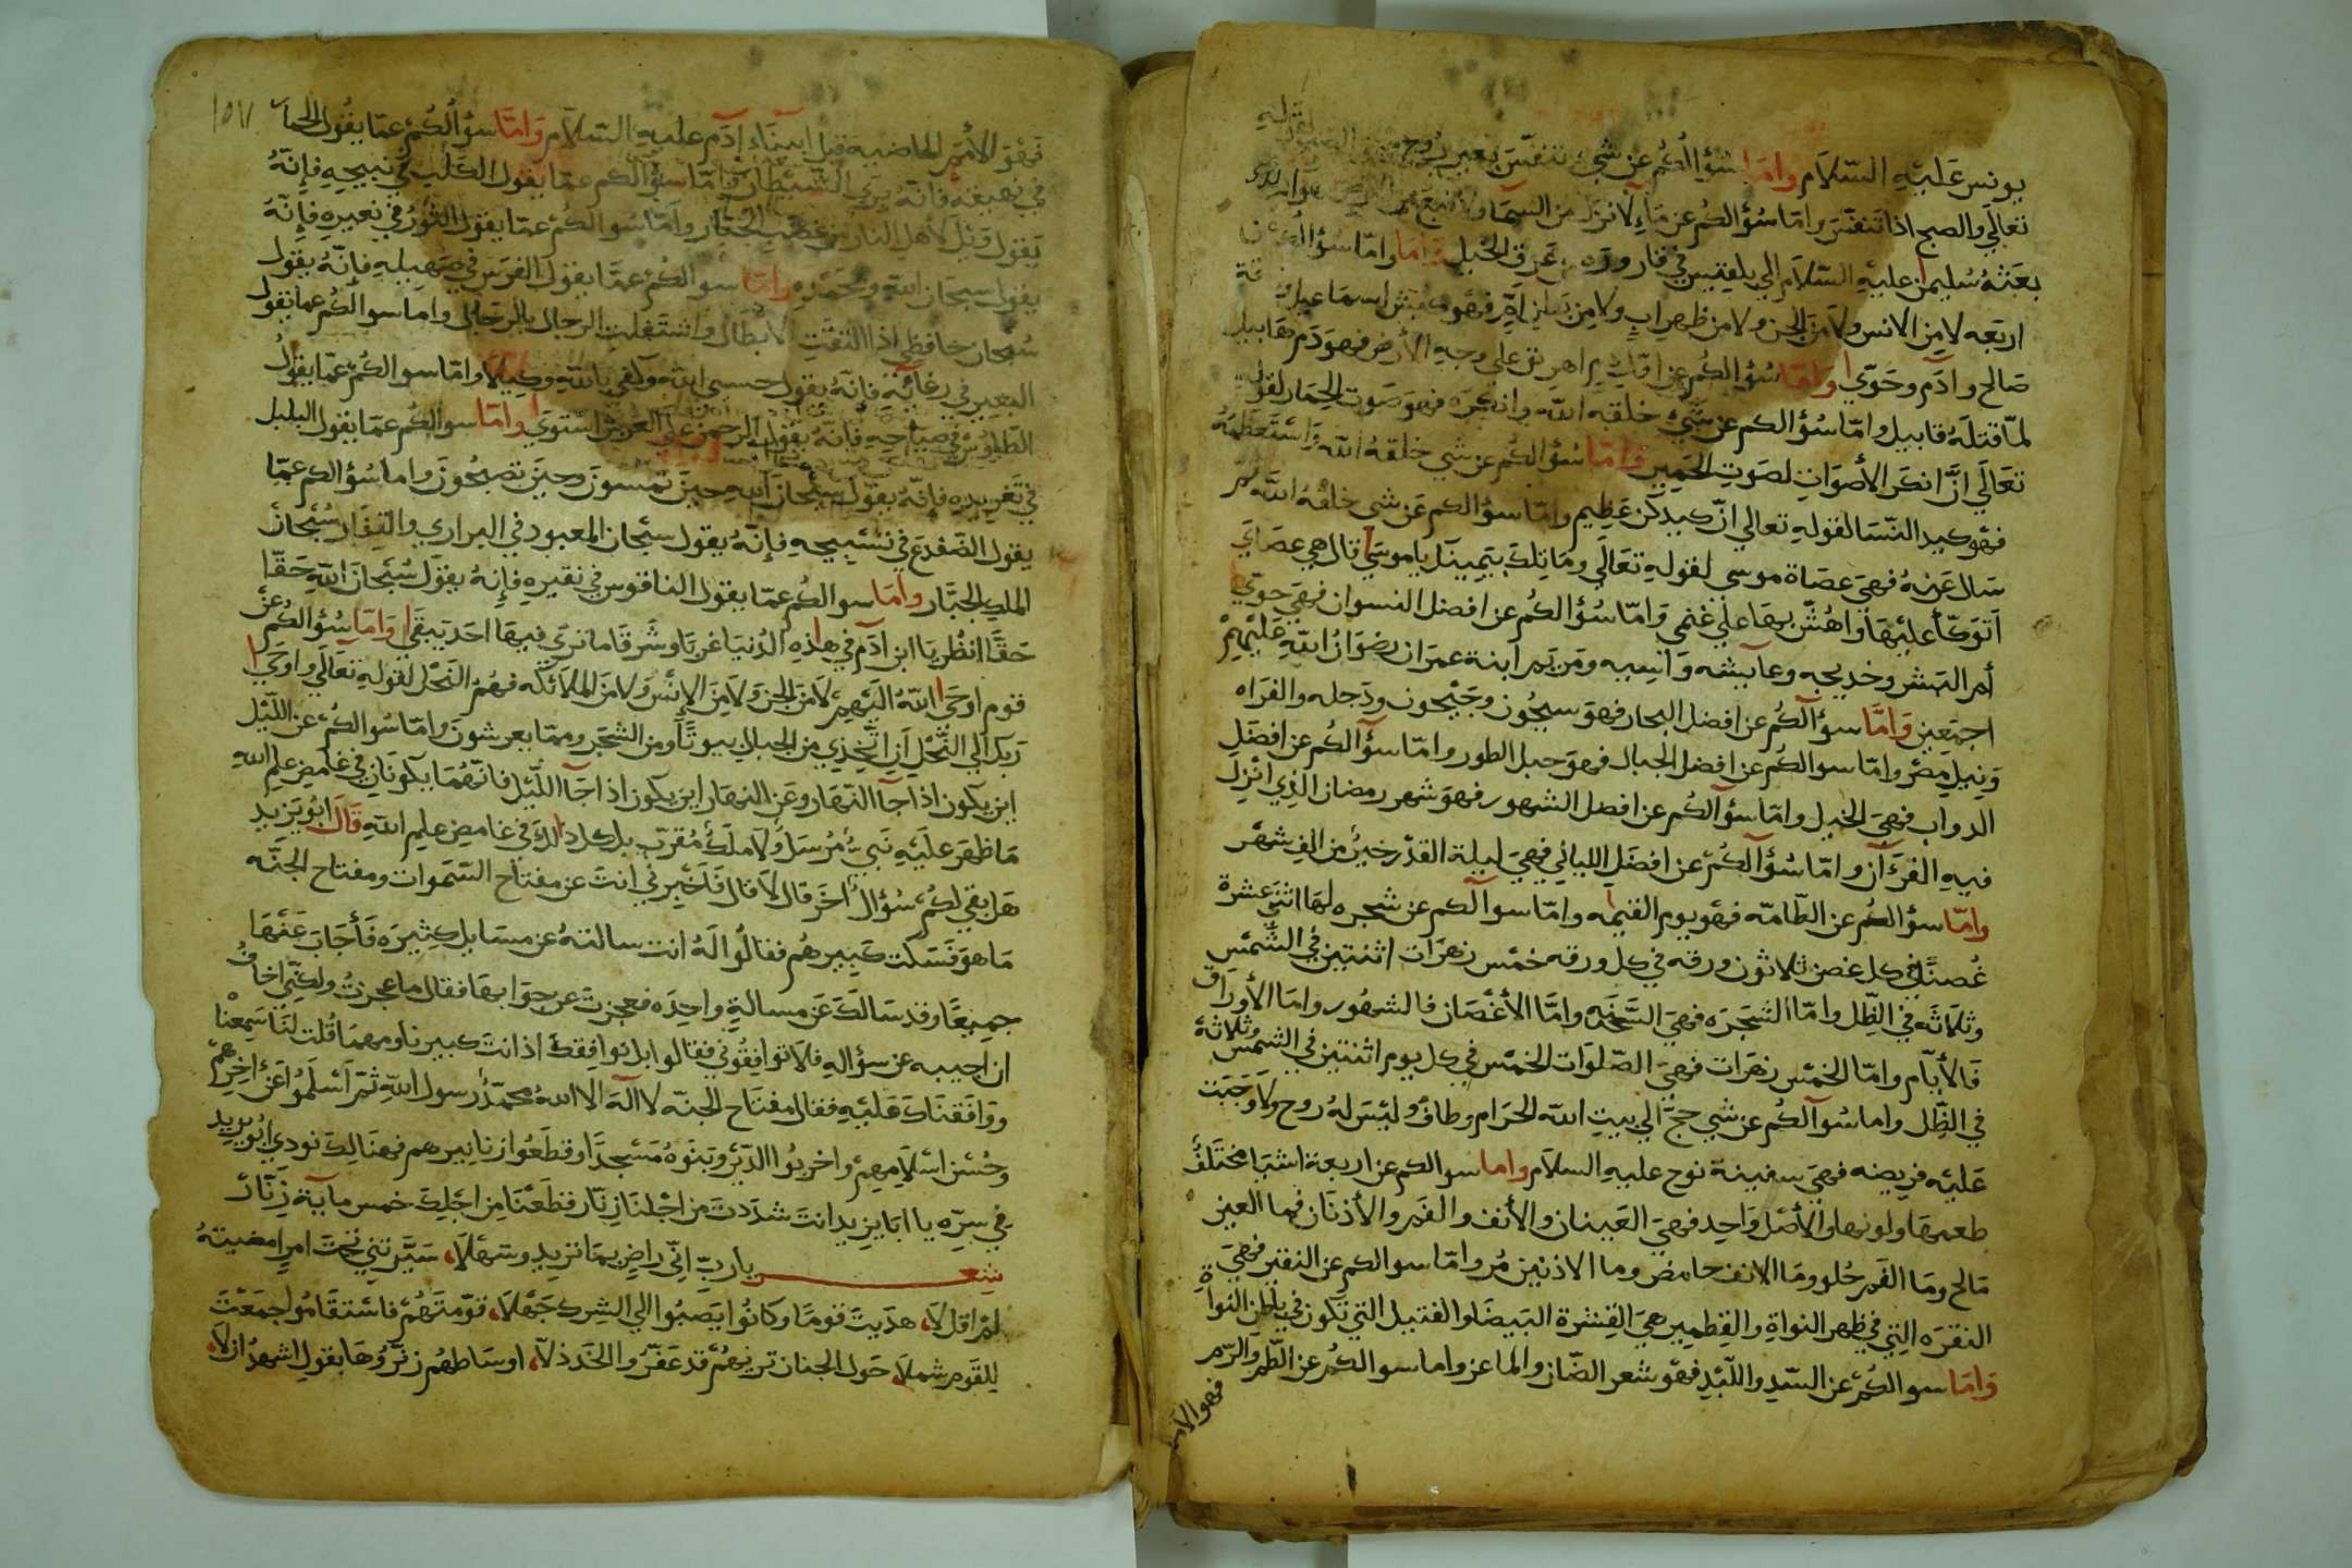 يونس عليه السلام واما سؤالكم عن شي تنفس بغير روح
تعالي والصبح اذا تنفس واما سؤالكم عن ماء لا نزل من السما ولا نبع من
بعثه سليمان عليه السلام الي بلقيس في قاروره من عرق الخيل واما سؤالكم عن
اربعه لا من الانس ولا من الجن ولا من ظهر اب ولا من بطن ام فهو كبش اسماعيل
صالح وادم وحوي واما سؤالكم عن اول دم اهرق علي وجه الأرض فهو دم هابيل
لما قتله قابيل واما سؤالكم عن شي خلقه الله وانكره فهو صوت الحمار لقوله
تعالي ان انكر الأصوات لصوت الحمير واما سؤالكم عن شي خلقه الله واستعظمه
فهو كيد النسا لقوله تعالي ان كيدكن عظيم واما سؤالكم عن شي خلقه الله ثم
سال عنه فهي عصاة موسي لقوله تعالي وما تلك بيمينك يا موسي قال هي عصاي
اتوكأ عليها واهش بها علي غنمي واما سؤالكم عن افضل النسوان فهي حوي
أم البشر وخديجه وعايشه واسيه ومريم ابنة عمران رضوان الله عليهم
اجمعين واما سؤالكم عن افضل البحار فهو سيحون وجيحون ودجله والفراه
ونيل مصر واما سوالكم عن افضل الجبال فهو جبل الطور واما سؤالكم عن افضل
الدواب فهي الخيل واما سؤالكم عن افضل الشهور فهو شهر رمضان الذي انزل
فيه القرءان واما سؤالكم عن افضل الليالي فهي ليلة القدر خير من الف شهر
واما سؤالكم عن الطامه فهو يوم القيمه واما سوالكم عن شجره لها اثني عشرة
غصنا في كل غصن ثلاثون ورقه في كل ورقه خمس زهرات اثنتين في الشمس
وثلاثه في الظل واما الشجره فهي السنه واما الأغصان فالشهور واما الأوراق
فالأيام واما الخمس زهرات فهي الصلوات الخمس في كل يوم اثنتين في الشمس وثلاثة
في الظل واما سوالكم عن شي حج الي بيت الله الحرام وطاف وليس له روح ولا وجبت
عليه فريضه فهي سفينة نوح عليه السلام واما سوالكم عن اربعة اشيا مختلف
طعمها ولونها والأصل واحد فهي العينان والأنف والفم والأذنان فما العين
مالح وما الفم حلو وما الانف حامض وما الاذنين مر واما سوالكم عن النقير فهي
النقره التي في ظهر النواة والقطمير هي القشرة البيضا والفتيل التي تكون في باطن النواة
واما سوالكم عن السبد واللبد فهو شعر الضان والماعز واما سوالكم عن الطم والرم
فهو الأمم
١٥٧
فهو الأمم الماضيه قبل ابينا ءادم عليه السلام واما سؤالكم عما يقول الحمار
في نهيقه فانه يري الشيطان واما سؤالكم عما يقول الكلب في نبيحه فإنه
يقول ويل لأهل النار من غضب الجبار واما سوالكم عما يقول الثور في نعيره فإنه
يقول سبحان الله وبحمده واما سوالكم عما يقول الفرس في صهيله فإنه يقول
سبحان حافظي اذا التقت الأبطال واشتغلت الرجال بالرجال واما سوالكم عما يقول
البعير في رغائه فإنه يقول حسبي الله وكفي بالله وكيلا واما سوالكم عما يقول
الطاوس في صياحه فإنه يقول الرحمن علي العرش استوي واما سوالكم عما يقول البلبل
في تغريده فإنه يقول سبحان الله حين تمسون وحين تصبحون واما سؤالكم عما
يقول الضفدع في تسبيحه فإنه يقول سبحان المعبود في البراري والقفار سبحان
الملك الجبار واما سوالكم عما يقول الناقوس في نقيره فإنه يقول سبحان الله حقا
حقا انظر يا ابن ادم في هذه الدنيا غربا وشرقا ما تري فيها احد يبقي واما سؤالكم عن
قوم اوحي الله اليهم لا من الجن ولا من الإنس ولا من الملائكه فهم النحل لقوله تعالي واوحي
ربك الي النحل ان اتخذي من الجبال بيوتا ومن الشجر ومما يعرشون واما سوالكم عن الليل
اين يكون اذا جآ النهار وعن النهار اين يكون اذا جآ الليل فانهما يكونان في غامض علم الله
ما ظهر عليه نبي مرسل ولا ملك مقرب بل كل ذلك في غامض علم الله قال ابو يزيد
هل بقي لكم سؤال اخر قال لا قال فاخبرني انت عن مفتاح السموات ومفتاح الجنه
ما هو فسكت كبيرهم فقالوا له انت سالته عن مسايل كثيره فأجاب عنها
جميعا وقد سالك عن مسالة واحده فعجزت عن جوابها فقال ما عجزت ولكني اخاف
ان اجيبه عن سؤاله فلا توافقوني فقالوا بل نوافقك اذ انت كبيرنا ومهما قلت لنا سمعنا
ووافقناك عليه فقال مفتاح الجنه لا اله الا الله محمد رسول الله ثم اسلموا عن اخرهم
وحسن اسلامهم واخربوا الدير وبنوه مسجدا وقطعوا زنانيرهم فهنالك نودي ابو يزيد
في سره يا ابا يزيد انت شددت من اجلنا زنار فقطعنا من اجلك خمس ماية زنار
شعر يا رب اني راض بما تريد وسهلا، سيرتني تحت امر امضيته
لم اقل لا، هديت قوما وكانوا يصبوا الي الشرك جهلا، قومتهم فاستقاموا جمعت
للقوم شملا، حول الجنان تريهم قد عفروا الخد ذلا، اوساطهم زنروها بقول اشهد ان لا،